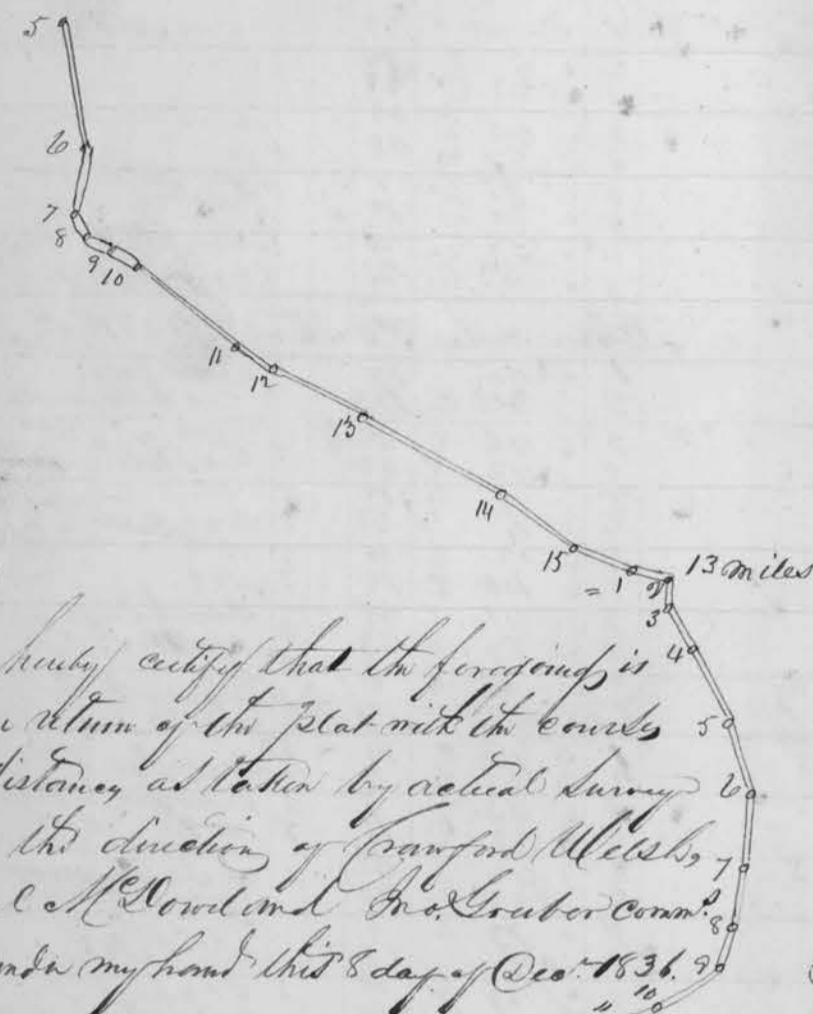 5
6
7
8
9
10
11
12
13
14
15
= 1
2 13 miles
3
4
5
6
7
8
9
" 10
hereby certify that the foregoing is
return of the plat with the courses
distances as taken by actual survey
the direction of Crawford Welsh,
C McDowel and Jno. Gruber comms.
under my hand this 8 day of Decr. 1836.